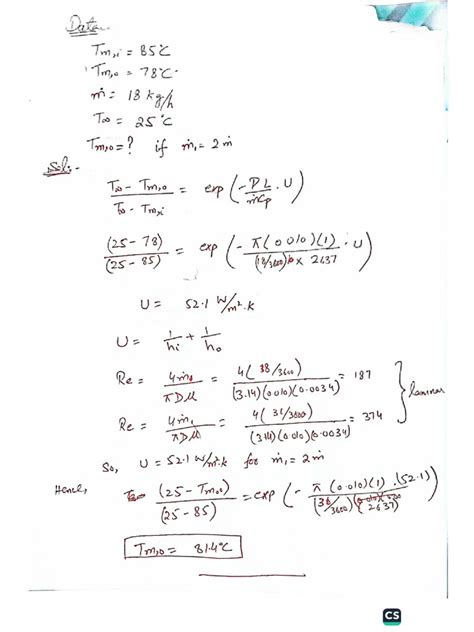 Data
Tm,i = 85°C
Tm,o = 78°C
ṁ = 18 kg/h
T∞ = 25°C
Tm,o = ? if ṁ₁ = 2ṁ
Sol:-
(T∞ - Tm,o)/(T∞ - Tm,i) = exp(-PL/ṁCp . U)
(25 - 78)/(25 - 85) = exp(-π(0.010)(1)/((18/3600) × 2637) . U)
U = 52.1 W/m².k
U = 1/hi + 1/ho
Re = 4ṁ/πDμ = 4(18/3600)/((3.14)(0.010)(0.0034)) = 187
Re = 4ṁ₁/πDμ = 4(36/3600)/((3.14)(0.010)(0.0034)) = 374 } laminar
So, U = 52.1 W/m².k for ṁ₁ = 2ṁ
Hence, (25 - Tm,o)/(25 - 85) = exp(-π(0.010)(1).(52.1)/((36/3600)(2637)))
Tm,o = 81.4°C
CS